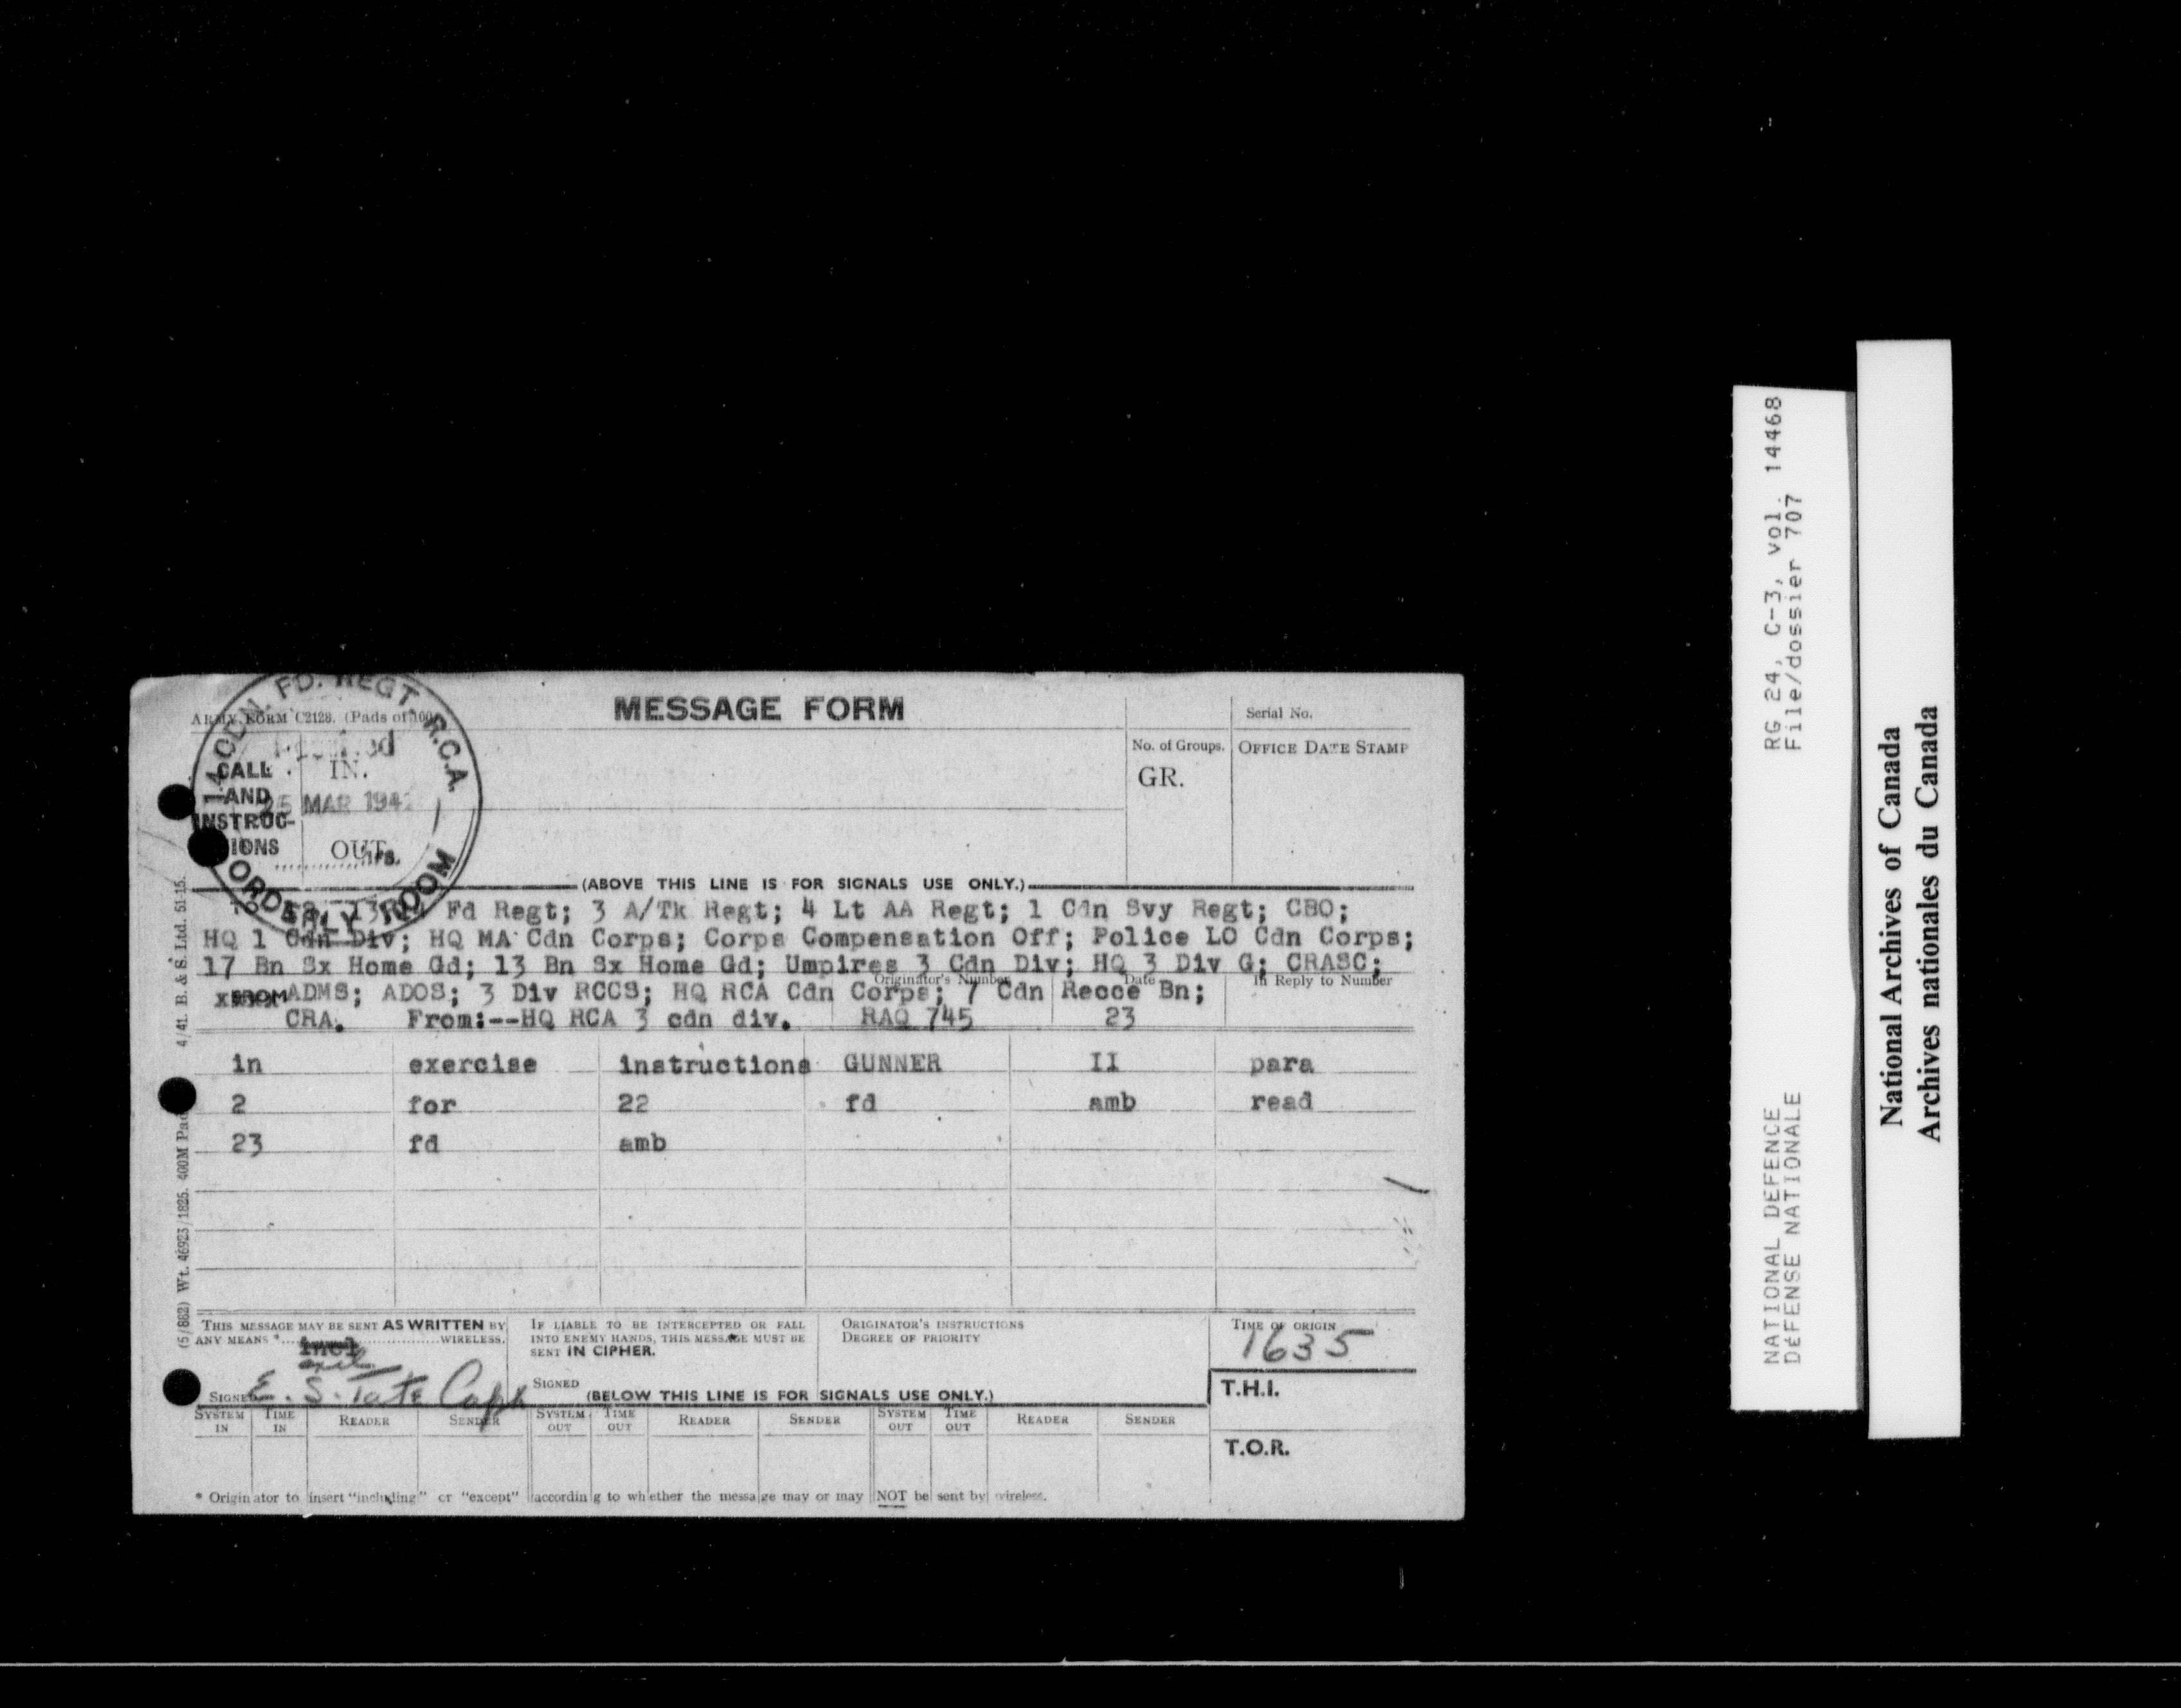 14 CDN. FD. REGT. R.C.A.
ORDERLY ROOM
25 MAR 194
Hrs.
ARMY FORM C2128. (Pads of 100
MESSAGE FORM
Serial No.
CALL AND INSTRUC-TIONS
IN.
OUT.
No. of Groups.
GR.
OFFICE DATE STAMP
(ABOVE THIS LINE IS FOR SIGNALS USE ONLY.)
TO 13 14 Fd Regt; 3 A/Tk Regt; 4 Lt AA Regt; 1 Cdn Svy Regt; CBO;
HQ 1 Cdn Div; HQ MA Cdn Corps; Corps Compensation Off; Police LO Cdn Corps;
17 Bn Sx Home Gd; 13 Bn Sx Home Gd; Umpires 3 Cdn Div; HQ 3 Div G; CRASC;
Originator's Number Date In Reply to Number
FROM ADMS; ADOS; 3 Div RCCS; HQ RCA Cdn Corps; 7 Cdn Recce Bn;
CRA. From:--HQ RCA 3 cdn div. RAQ 745 23
in exercise instructions GUNNER II para
2 for 22 fd amb read
23 fd amb
(5/882) Wt. 46923/1825. 400M Pads 4/41. B. & S. Ltd. 51-15.
THIS MESSAGE MAY BE SENT AS WRITTEN BY
ANY MEANS * WIRELESS.
incl
SIGNED E. S. Tate Capt
IF LIABLE TO BE INTERCEPTED OR FALL
INTO ENEMY HANDS, THIS MESSAGE MUST BE
SENT IN CIPHER.
SIGNED
ORIGINATOR'S INSTRUCTIONS
DEGREE OF PRIORITY
TIME OF ORIGIN
1635
(BELOW THIS LINE IS FOR SIGNALS USE ONLY.)
T.H.I.
SYSTEM IN TIME IN READER SENDER SYSTEM OUT TIME OUT READER SENDER SYSTEM OUT TIME OUT READER SENDER
T.O.R.
* Originator to insert "including" or "except" according to whether the message may or may NOT be sent by wireless.
RG 24, C-3, vol. 14468
File/dossier 707
NATIONAL DEFENCE
DÉFENSE NATIONALE
National Archives of Canada
Archives nationales du Canada